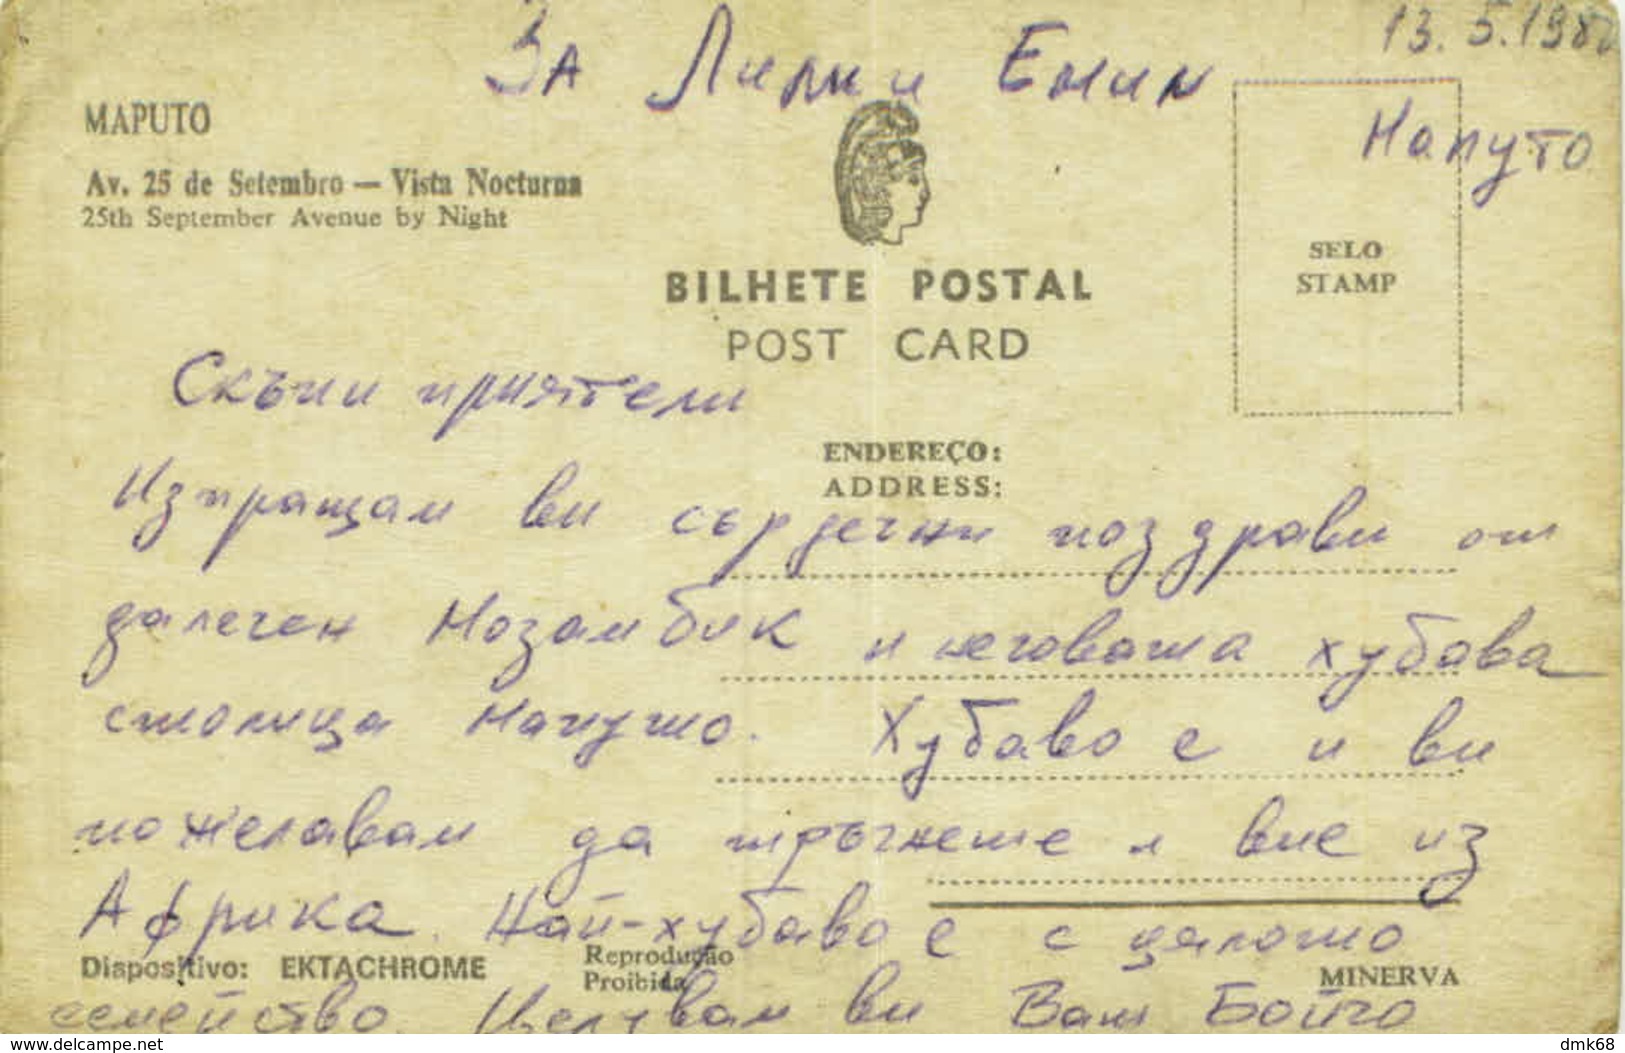 За Лили и Емил
13.5.198
Мапуто
MAPUTO
Av. 25 de Setembro — Vista Nocturna
25th September Avenue by Night
BILHETE POSTAL
POST CARD
SELO
STAMP
Скъпи приятели
ENDEREÇO:
ADDRESS:
Изпращам ви сърдечни поздрави от
далечен Мозамбик и неговата хубава
столица Мапуто. Хубаво е и ви
пожелавам да тръгнете и вие из
Африка. Най-хубаво е с цялото
Diapositivo: EKTACHROME
Reprodução
Proibida
MINERVA
семейство. Целувам ви Ваш Бойчо
www.delcampe.net
dmk68